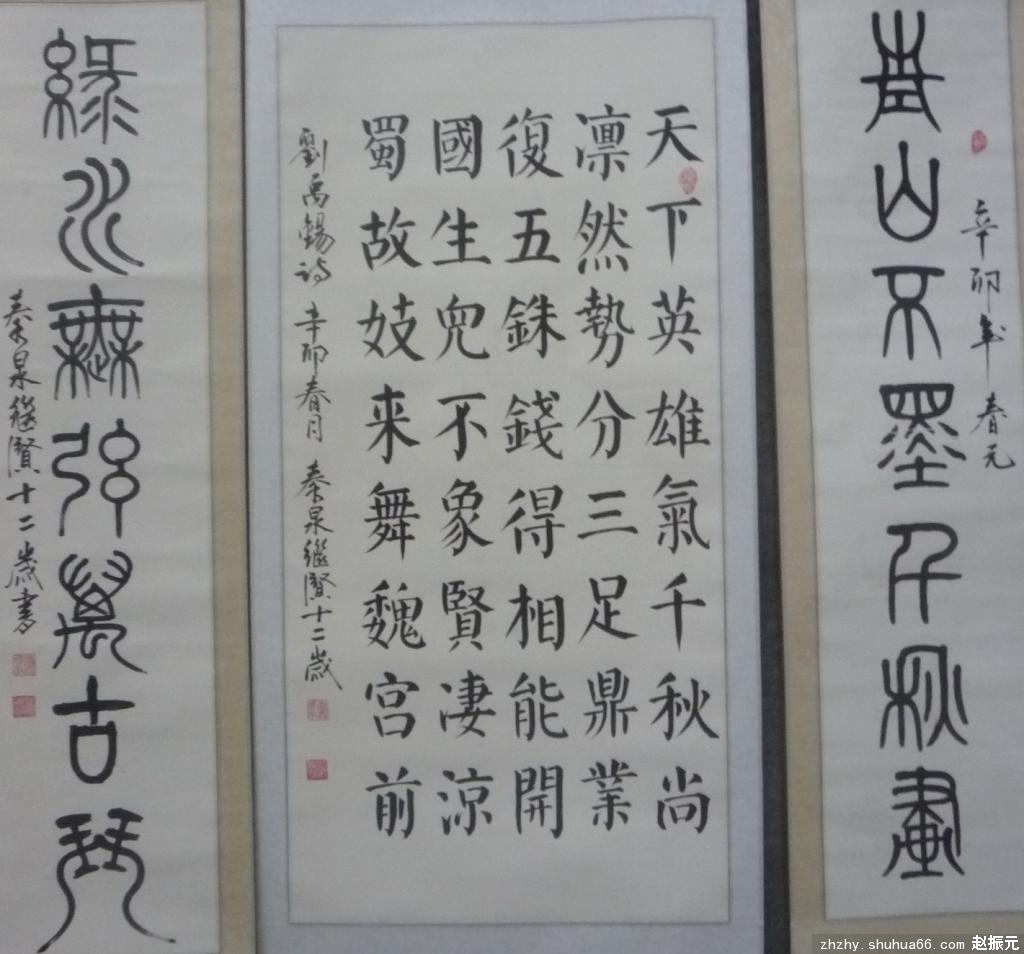 辛卯年春元
青山不墨千秋畫
天下英雄氣千秋尚
凛然勢分三足鼎業
復五銖錢得相能開
國生兒不象賢凄涼
蜀故妓来舞魏宫前
劉禹錫詩 辛卯春月 秦泉繼賢十二歲
綠水無弦萬古琴
秦泉繼賢十二歲書
zhzhy.shuhua66.com 赵振元